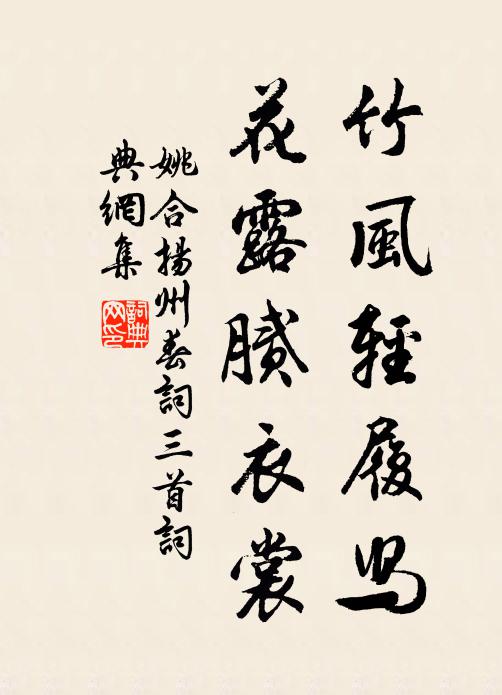 竹風輕履舄
花露膩衣裳
姚合揚州春詞三首詞
典網集
詞典
网印